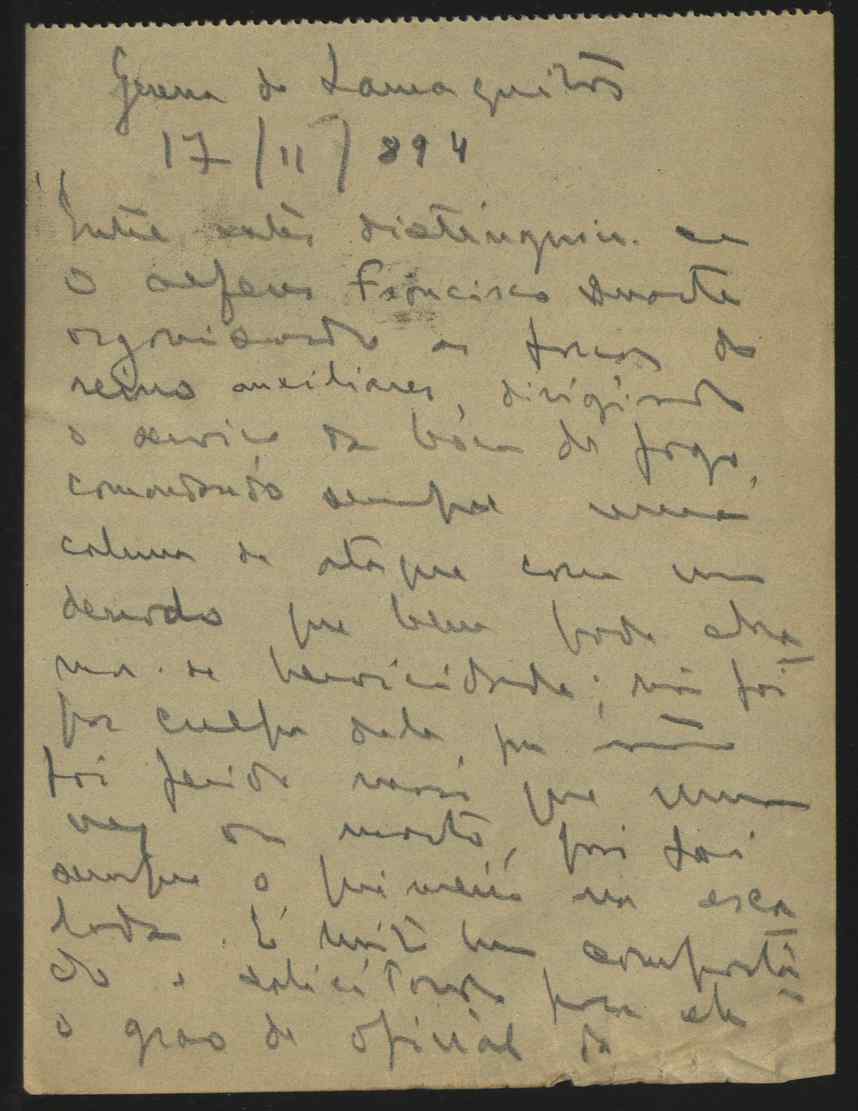 Guerra de Lamaquitos
17/11/894
"Entre estes distinguiu-se
o alferes Francisco Duarte
organisando as forças do
reino auxiliares, dirigindo
o serviço da bôca de fogo,
comandando sempre uma
coluna de ataque com um
denodo que bem pode cha
mar-se heroicidade; não foi
por culpa dele, que não
foi ferido mais que uma
vez ou morto, pois foi
sempre o primeiro na esca
lada. É muito bem comportá
do e solicitando para ele
o grao de oficial da